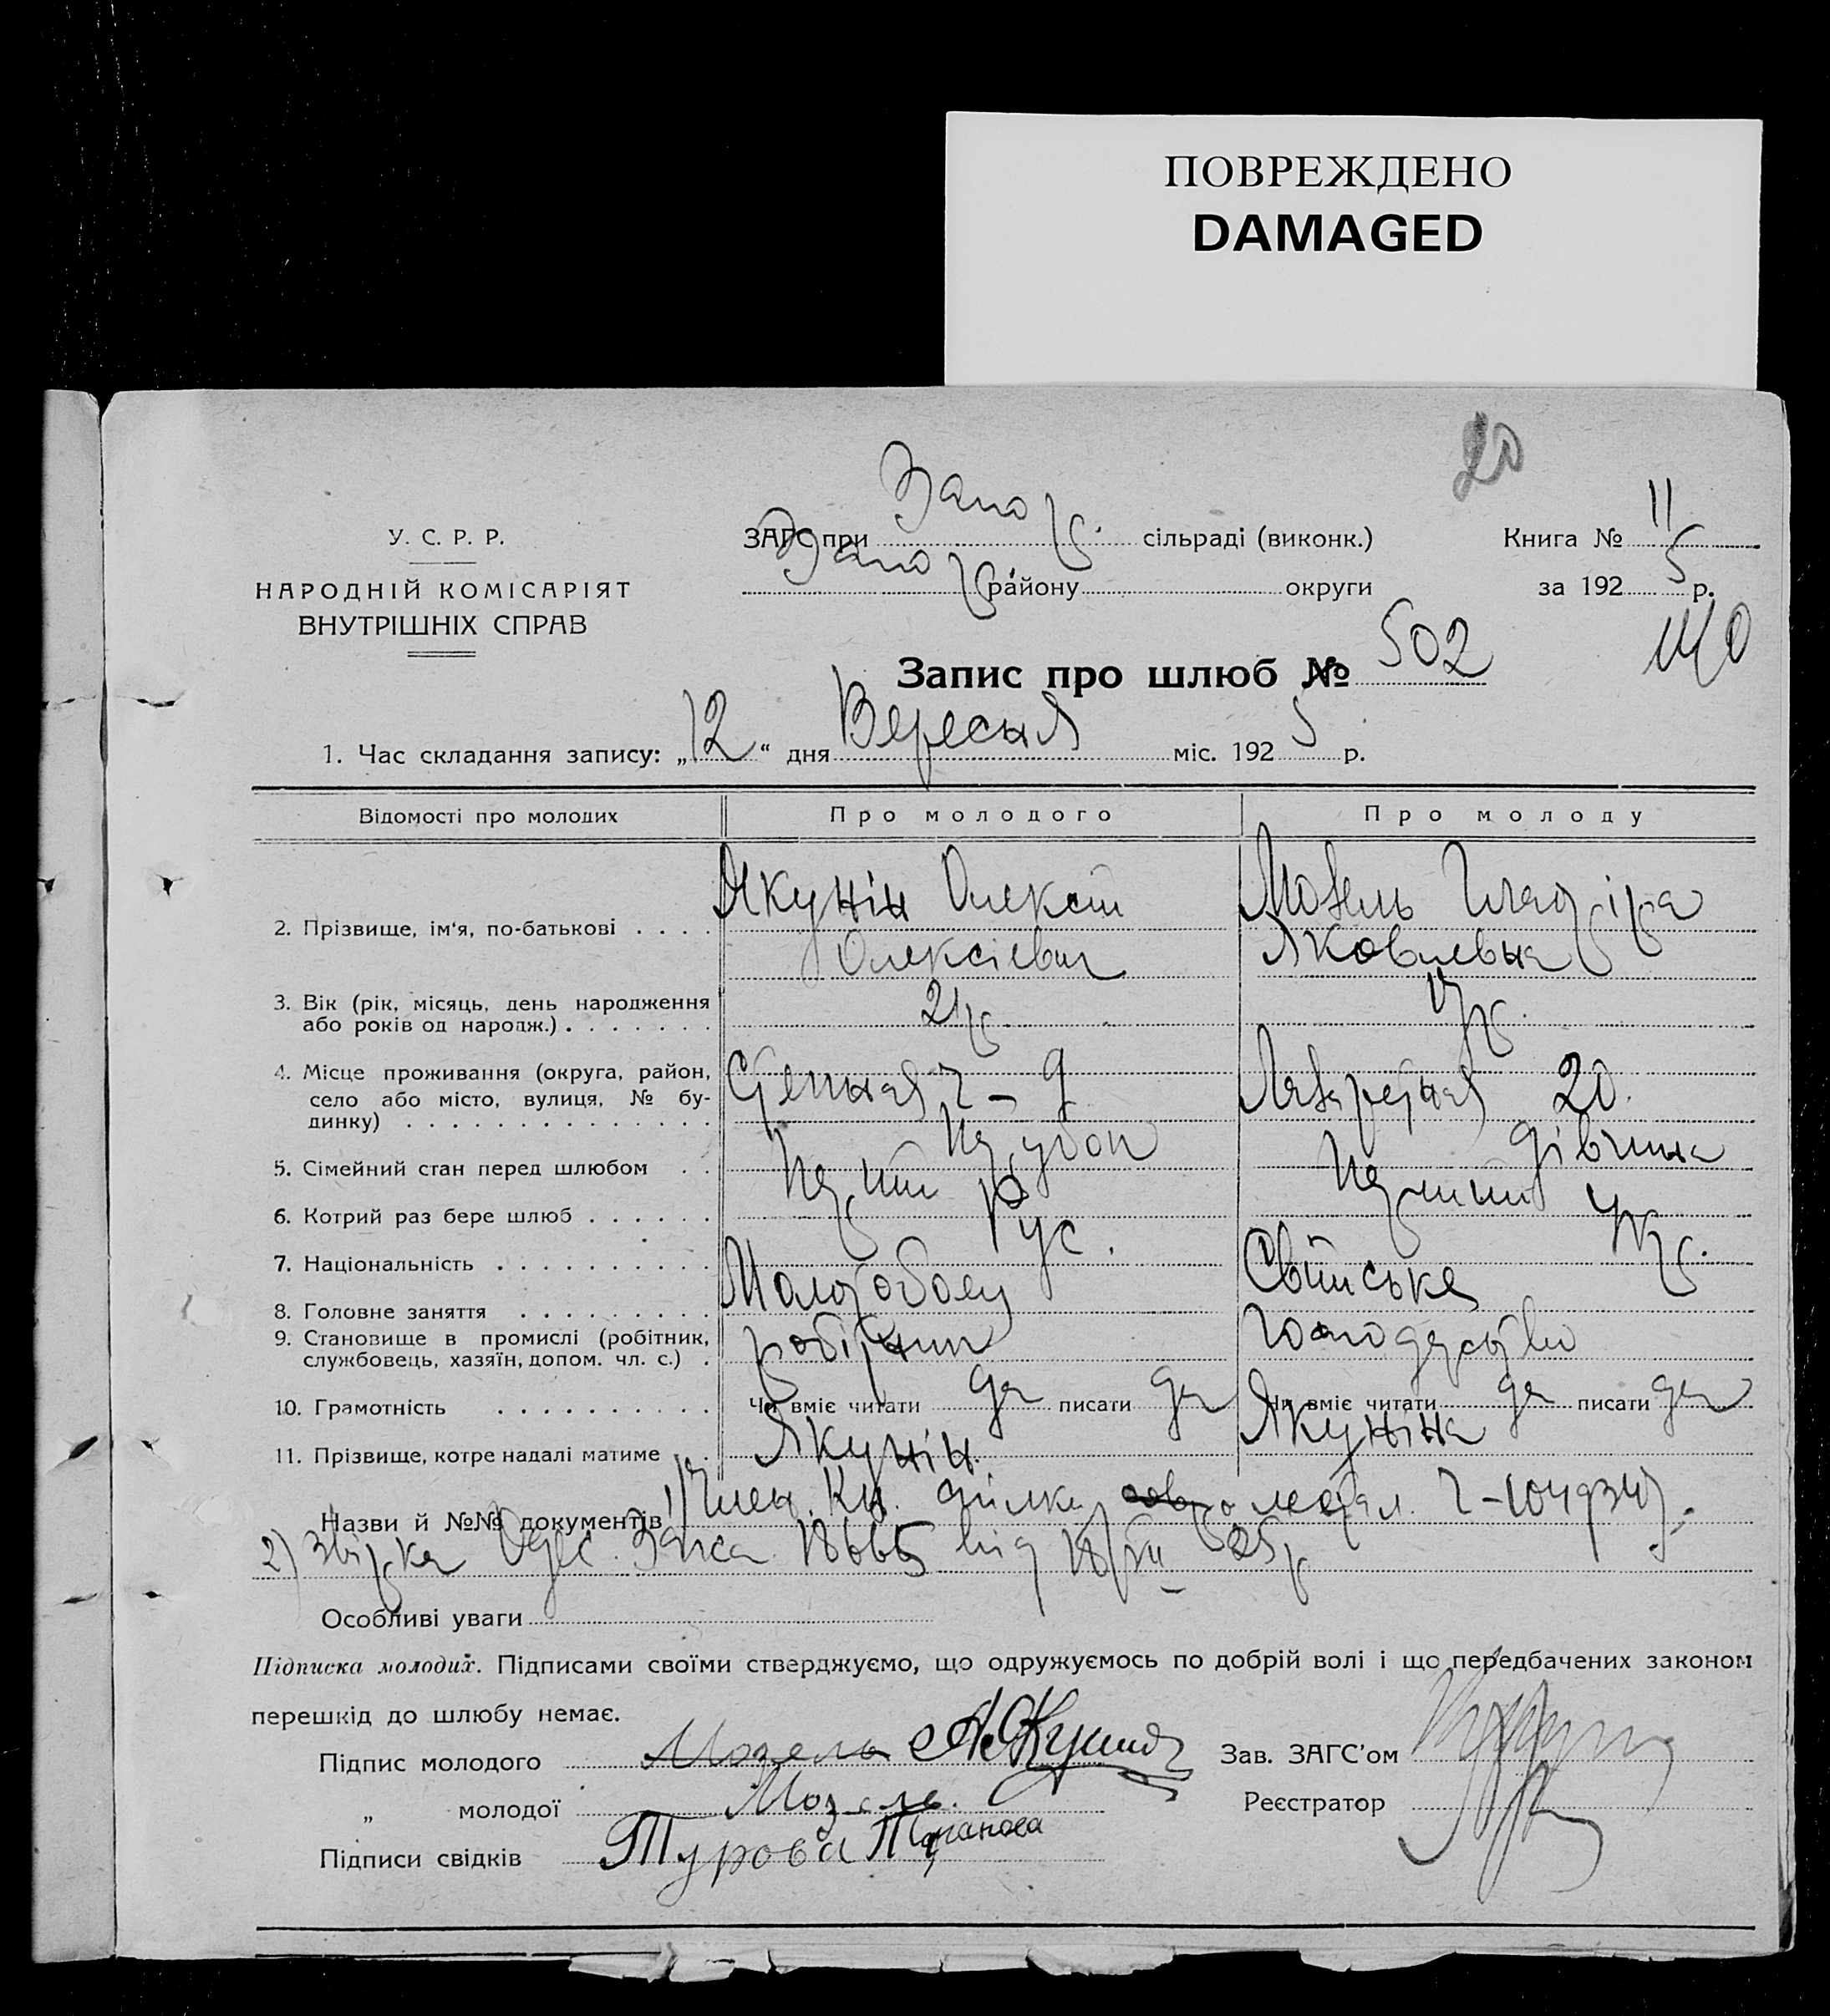 ПОВРЕЖДЕНО
DAMAGED
20
У. С. Р. Р.
НАРОДНІЙ КОМІСАРІЯТ
ВНУТРІШНІХ СПРАВ
ЗАГС при Запор. сільраді (виконк.)
Запор. району округи
Книга № 11
за 1925 р.
Запис про шлюб № 502
1. Час складання запису: „12“ дня Вересня міс. 1925 р.
Відомості про молодих Про молодого Про молоду
2. Прізвище, ім'я, по-батькові Якунін Олексій Мозель
Олексієвич Яковлевна
3. Вік (рік, місяць, день народження
або років од народж.) 21 р. 17 р.
4. Місце проживання (округа, район,
село або місто, вулиця, № будинку) Степная ч – 9 Лазаретная 20.
5. Сімейний стан перед шлюбом парубок дівчина
6. Котрий раз бере шлюб перший перший
7. Національність Рус. Укр.
8. Головне заняття Молотобоец Світське
9. Становище в промислі (робітник,
службовець, хазяїн, допом. чл. с.) робітник господарство
10. Грамотність Чи вміє читати да писати да Чи вміє читати да писати да
11. Прізвище, котре надалі матиме Якунін. Якуніна
Назви й №№ документів 1) Член. Кн. спілки метал. Ч-
2) Одес. Загса 18665 від 25 р
Особливі уваги
Підписка молодих. Підписами своїми стверджуємо, що одружуємось по добрій волі і що передбачених законом
перешкід до шлюбу немає.
Підпис молодого Мозель АЯкунин
Зав. ЗАГС'ом
„ молодої Мозель.
Реєстратор
Підписи свідків Турова